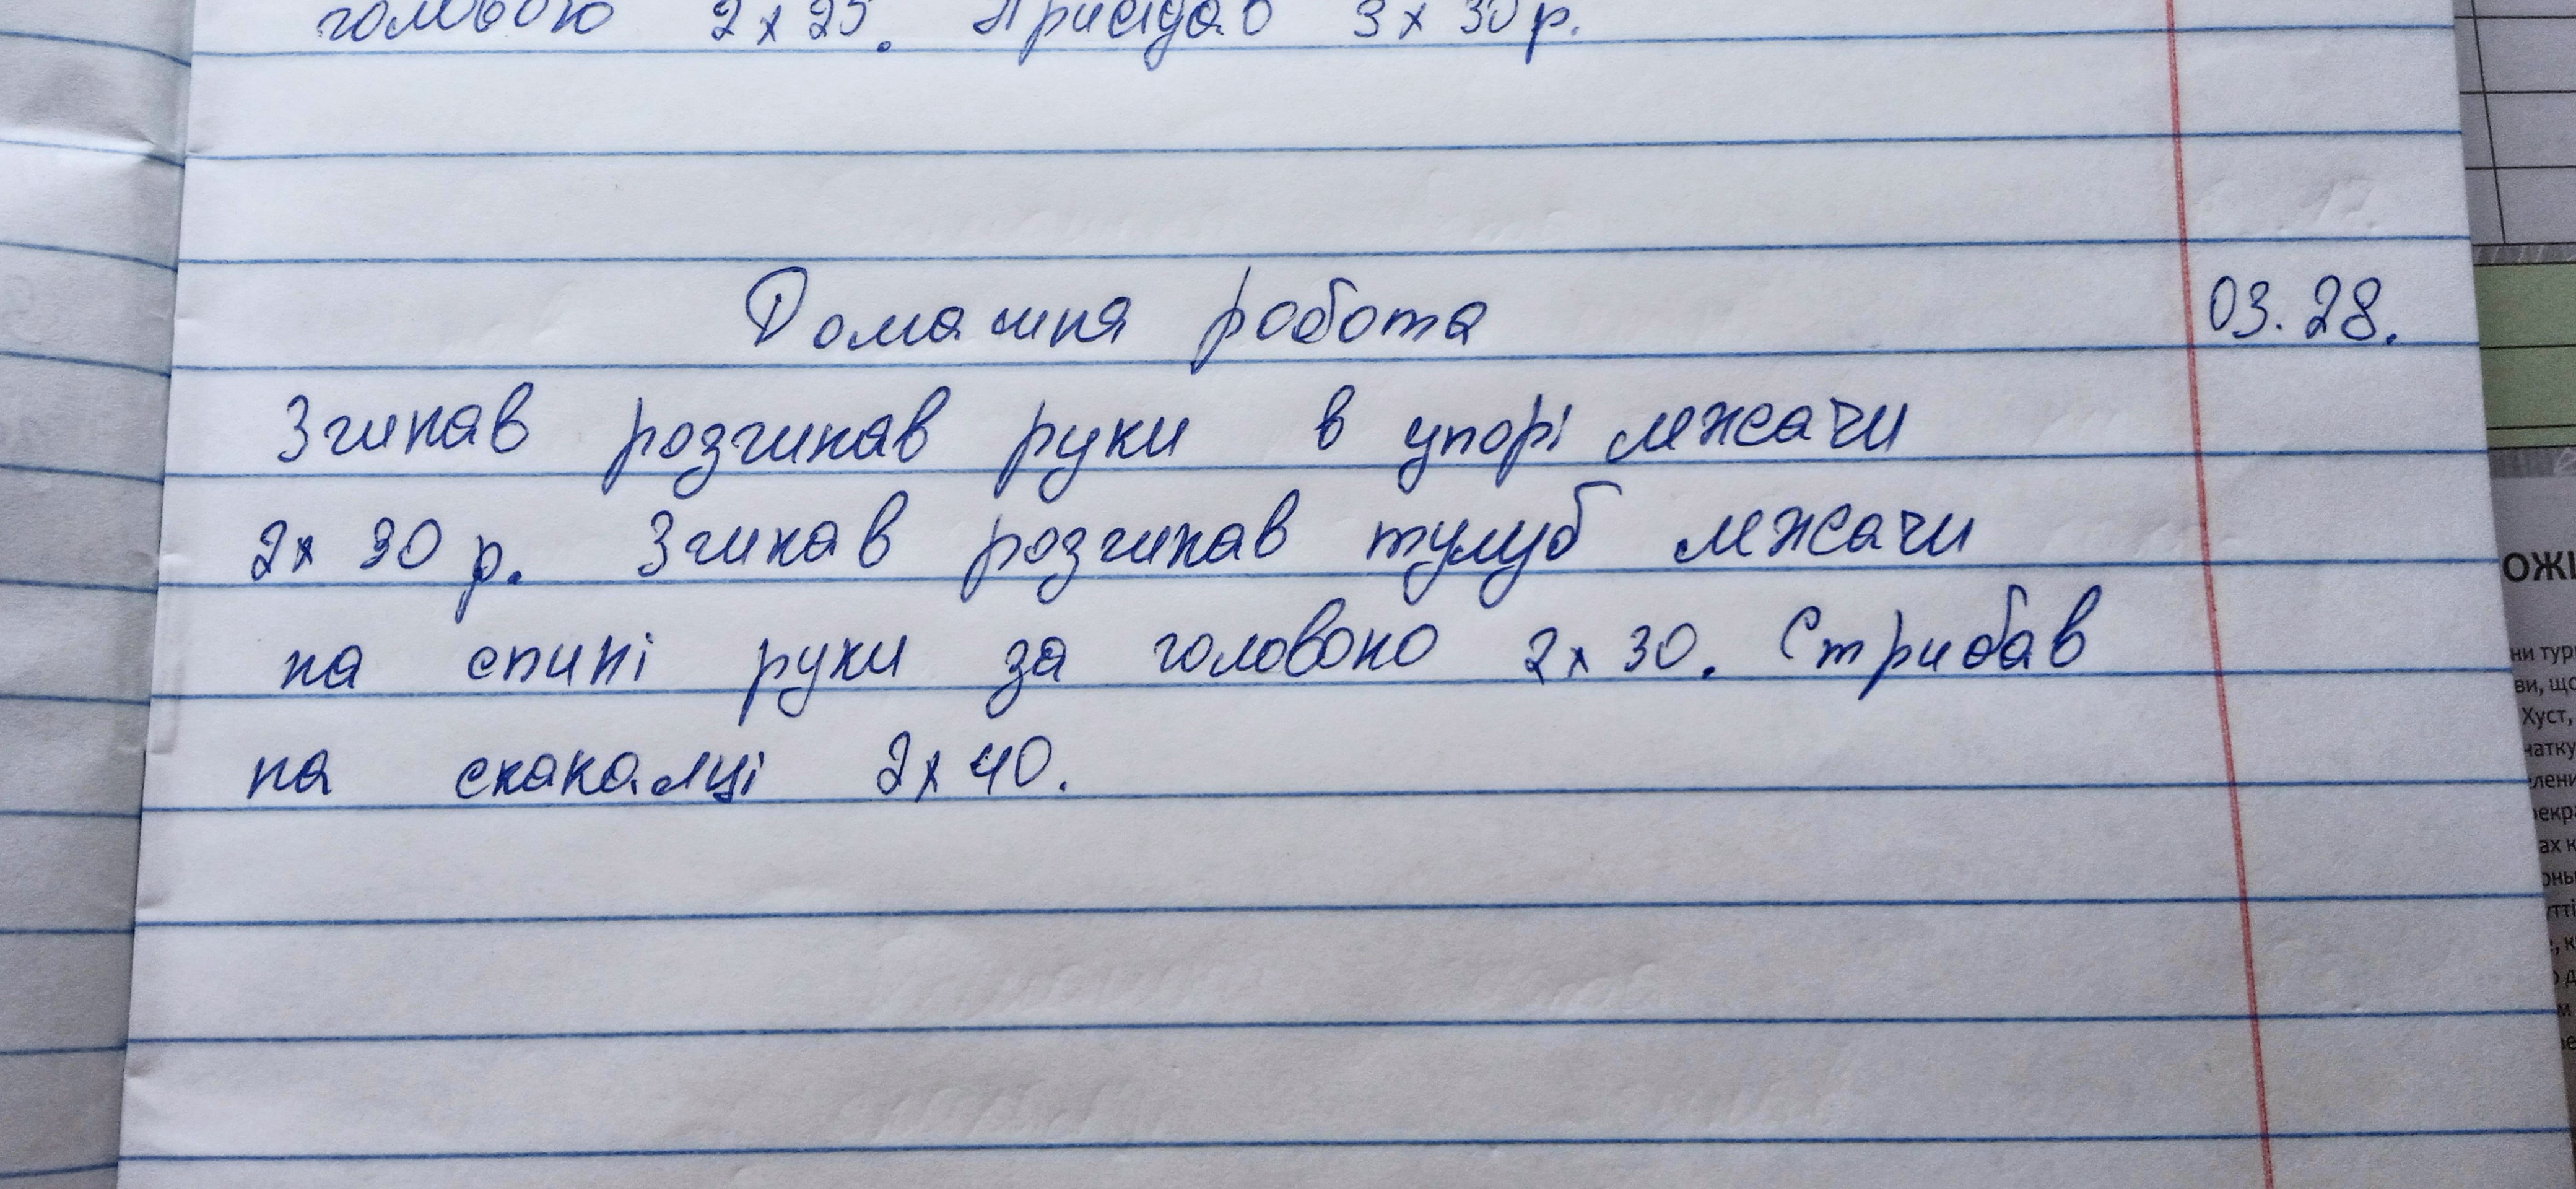 головою 2 х 25. Присідав 3 х 30 р.
Домашня робота 03.28.
Згинав розгинав руки в упорі лжсачи
2х 30 р. Згинав розгинав тулуб лжсачи
на спині руки за головою 2х 30. Стрибав
на скакалці 2х 40.
ОЖІ
ни тур
ви, що
Хуст,
чатку